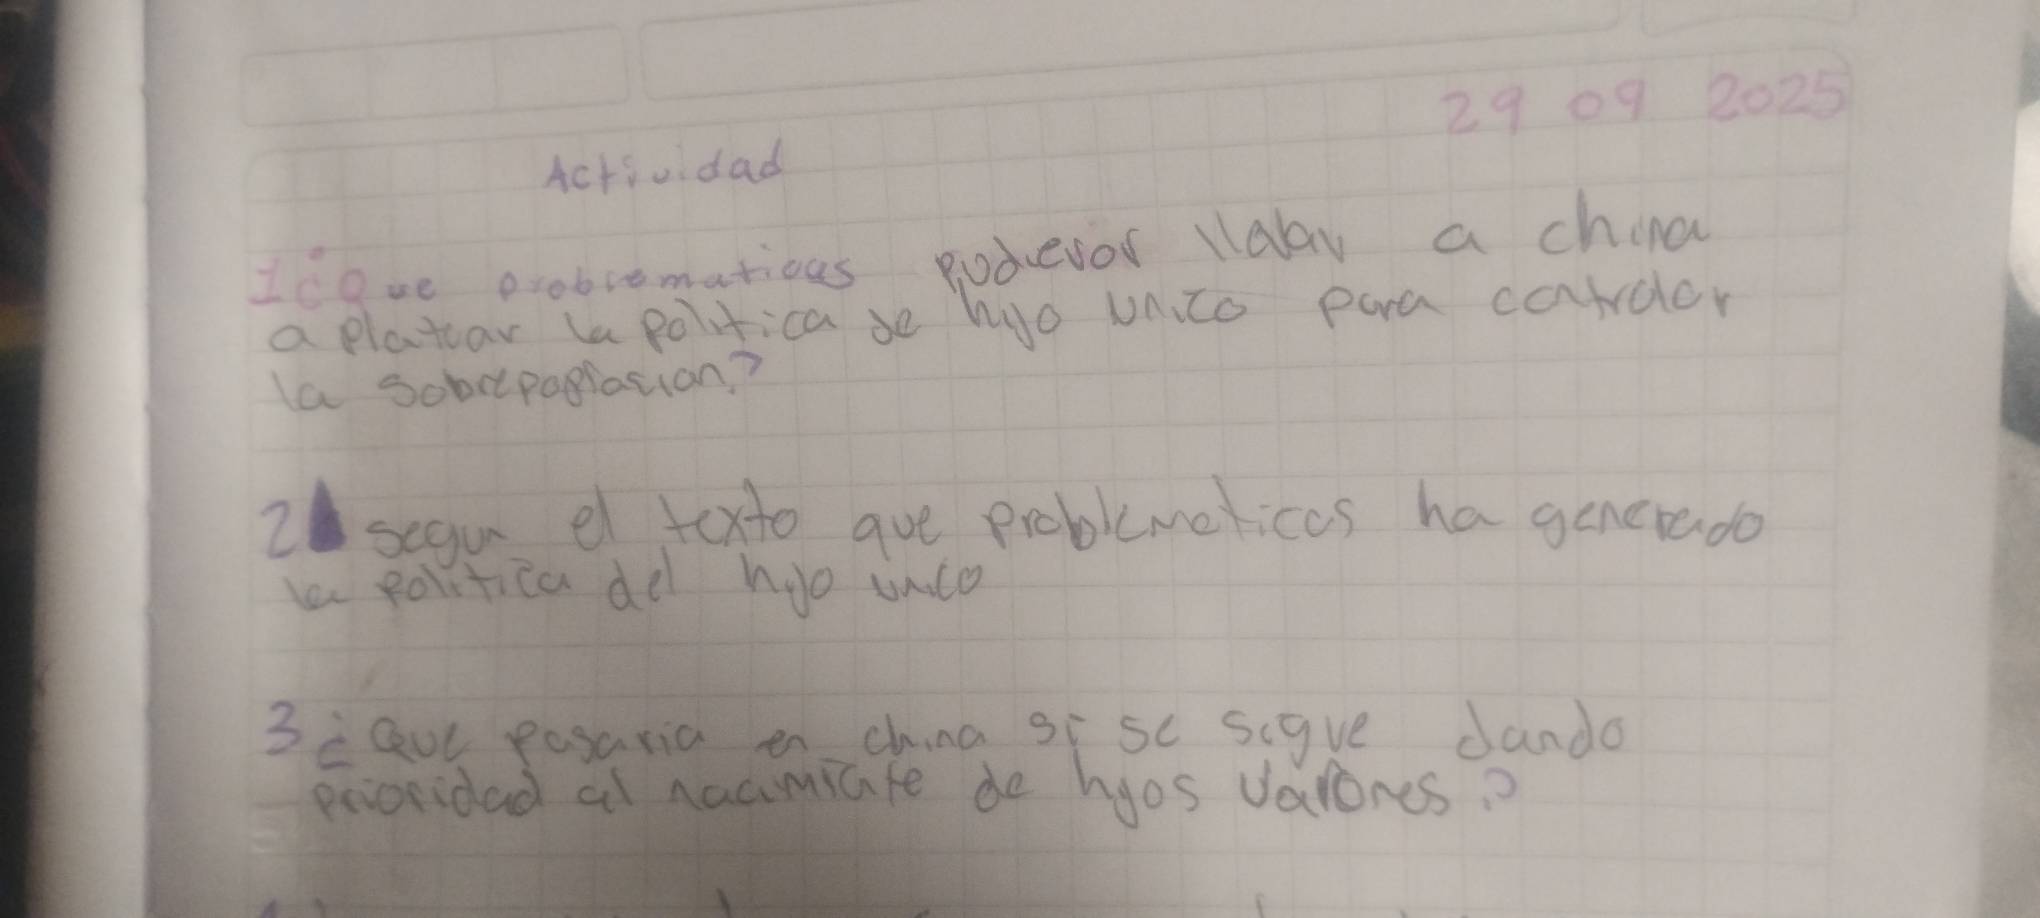 29 09 2025
Actividad
1¿Que problematicas pudieror llabar a china
a platicar la politica de hijo unico para controlar
la sobrepoplasion?
2 segun el texto que problematicas ha generado
la politica del hijo unico
3 ¿Que pasaria en china si se sigue dando
prioridad al nacimiente de hijos varones?